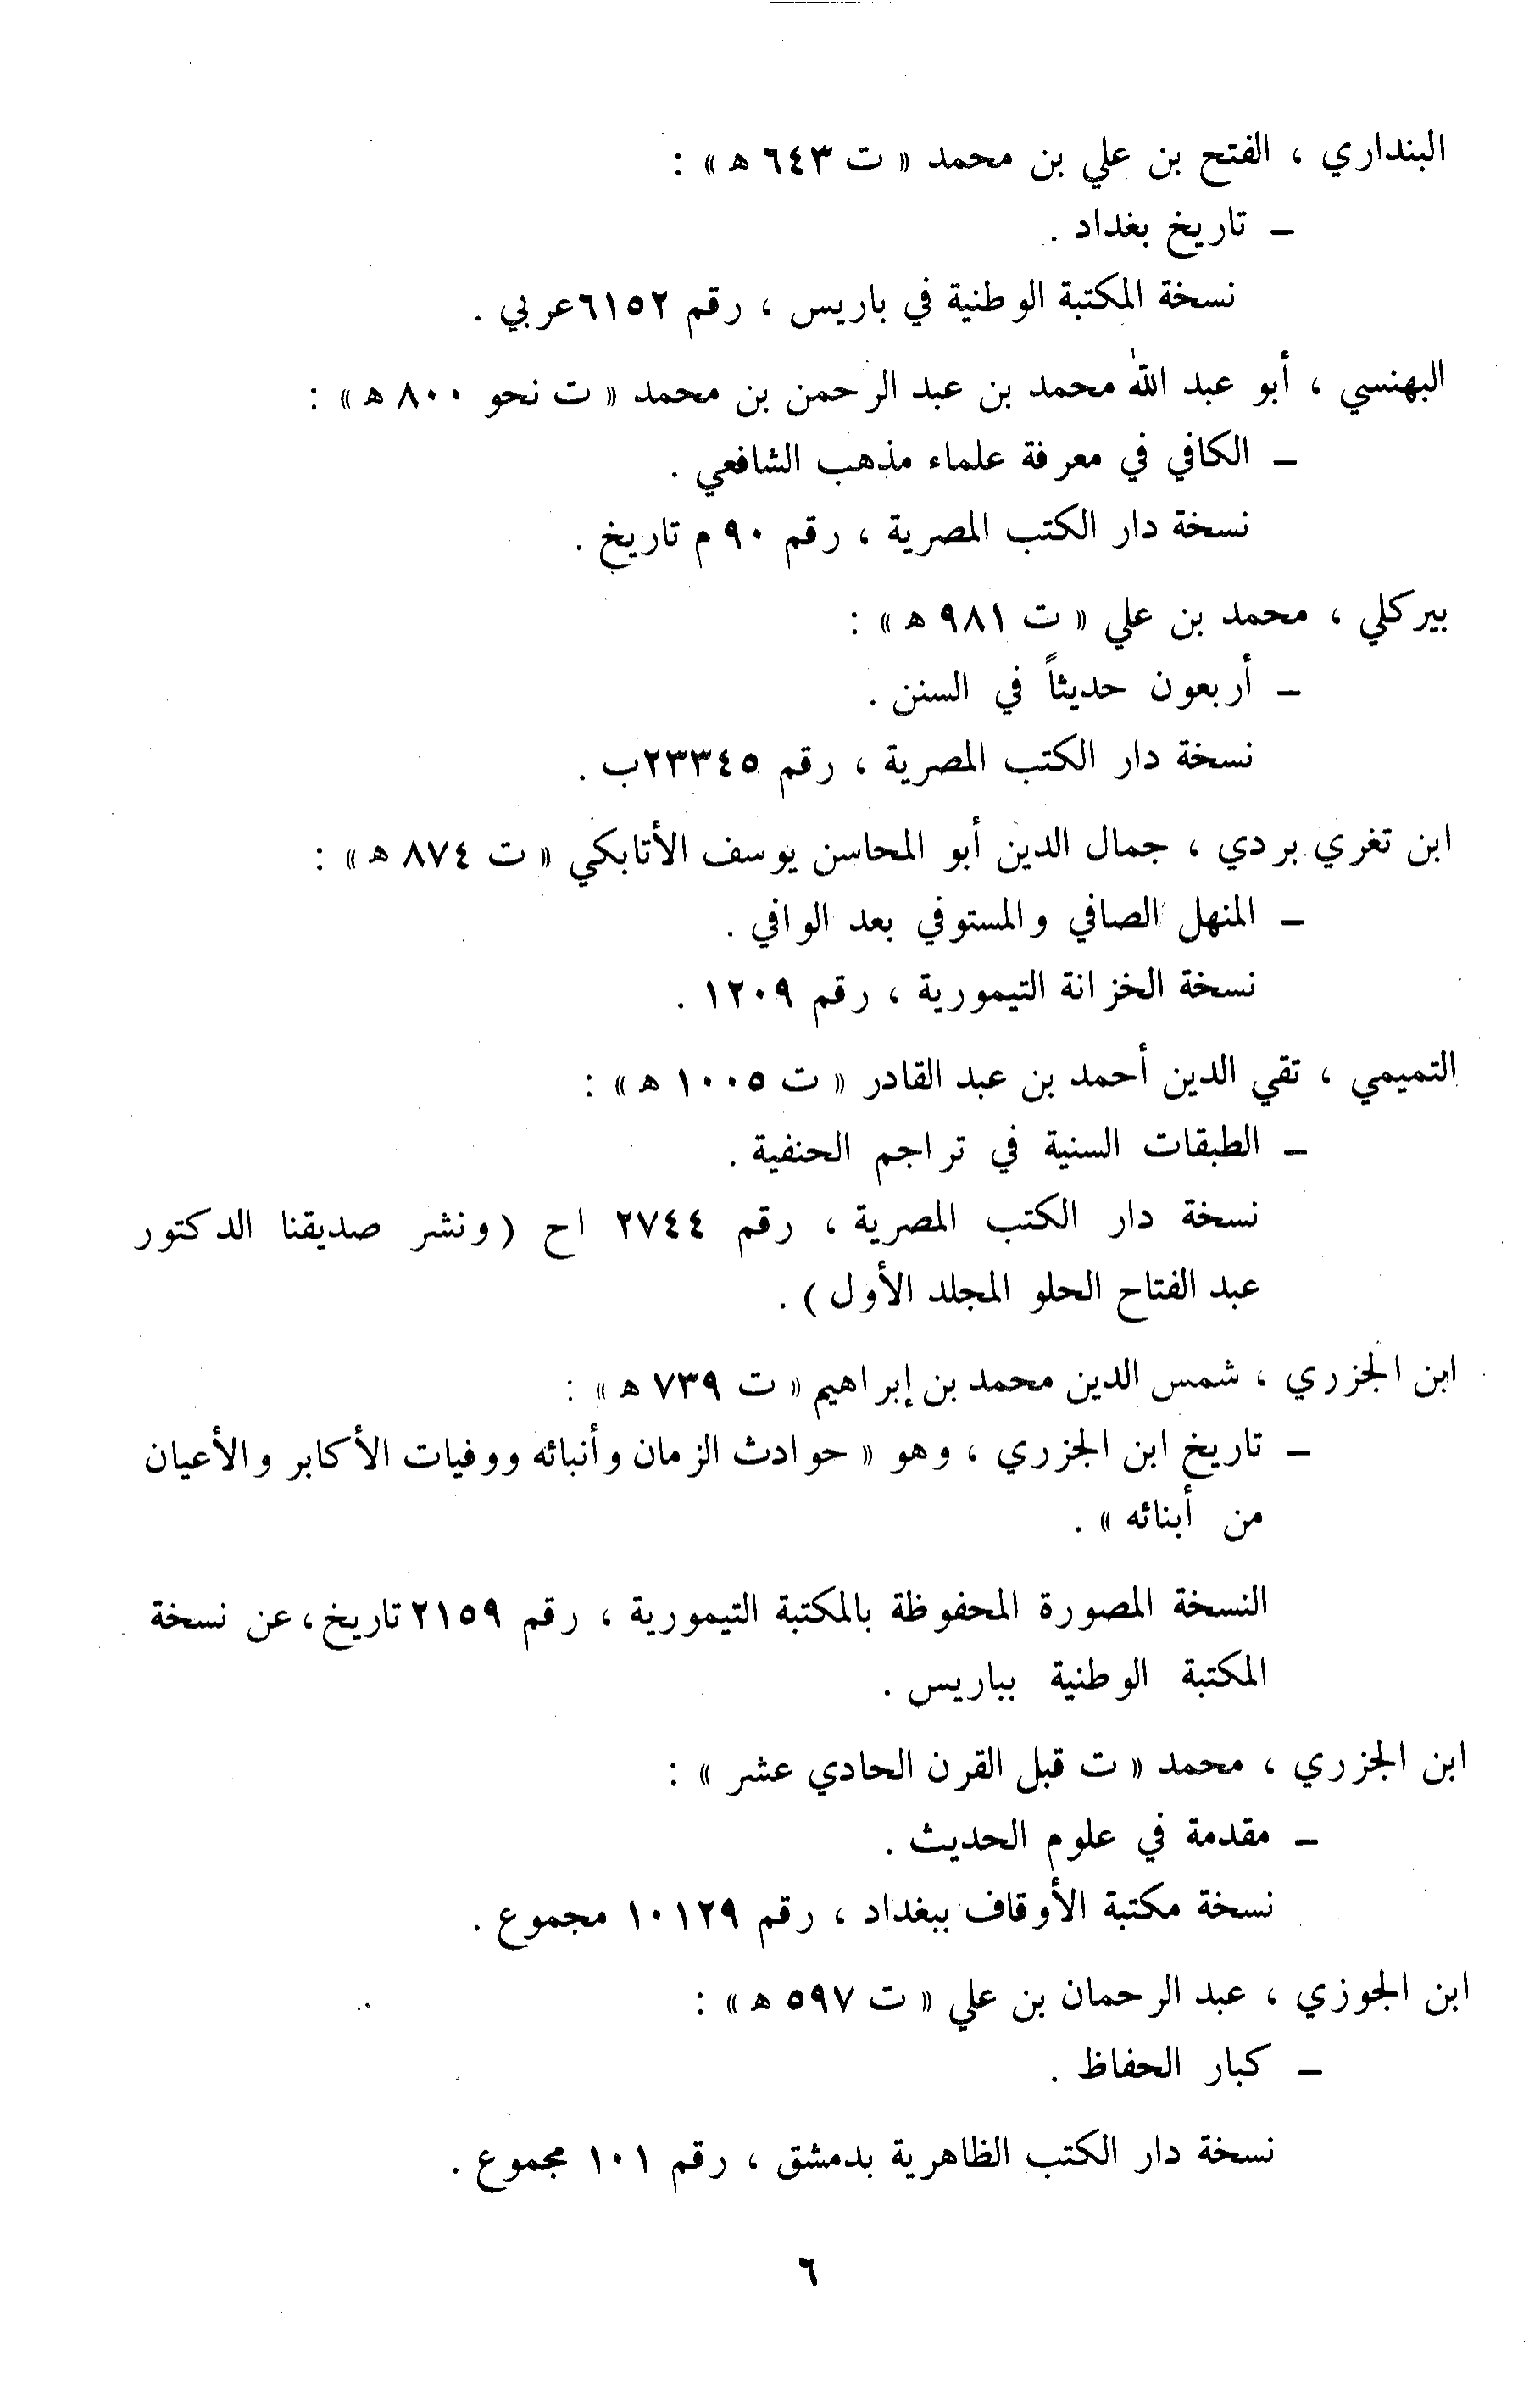 البنداري ، الفتح بن علي بن محمد « ت ٦٤٣ هـ » :
ـ تاريخ بغداد .
نسخة المكتبة الوطنية في باريس ، رقم ٦١٥٢عربي .
البهنسي ، أبو عبد الله محمد بن عبد الرحمن بن محمد « ت نحو ٨٠٠ هـ » :
ـ الكافي في معرفة علماء مذهب الشافعي .
نسخة دار الكتب المصرية ، رقم ٩٠ م تاريخ .
بيركلي ، محمد بن علي « ت ٩٨١ هـ » :
ـ أربعون حديثاً في السنن .
نسخة دار الكتب المصرية ، رقم ٢٣٣٤٥ب .
ابن تغري بردي ، جمال الدين أبو المحاسن يوسف الأتابكي « ت ٨٧٤ هـ » :
ـ المنهل الصافي والمستوفي بعد الوافي .
نسخة الخزانة التيمورية ، رقم ١٢٠٩ .
التميمي ، تقي الدين أحمد بن عبد القادر « ت ١٠٠٥ هـ » :
ـ الطبقات السنية في تراجم الحنفية .
نسخة دار الكتب المصرية ، رقم ٢٧٤٤ اح (ونشر صديقنا الدكتور
عبد الفتاح الحلو المجلد الأول) .
ابن الجزري ، شمس الدين محمد بن إبراهيم « ت ٧٣٩ هـ » :
ـ تاريخ ابن الجزري ، وهو « حوادث الزمان وأنبائه ووفيات الأكابر والأعيان
من أبنائه » .
النسخة المصورة المحفوظة بالمكتبة التيمورية ، رقم ٢١٥٩ تاريخ، عن نسخة
المكتبة الوطنية بباريس .
ابن الجزري ، محمد « ت قبل القرن الحادي عشر » :
ـ مقدمة في علوم الحديث .
نسخة مكتبة الأوقاف ببغداد ، رقم ١٠١٢٩ مجموع .
ابن الجوزي ، عبد الرحمان بن علي « ت ٥٩٧ هـ » :
ـ كبار الحفاظ .
نسخة دار الكتب الظاهرية بدمشق ، رقم ١٠١ مجموع .
٦